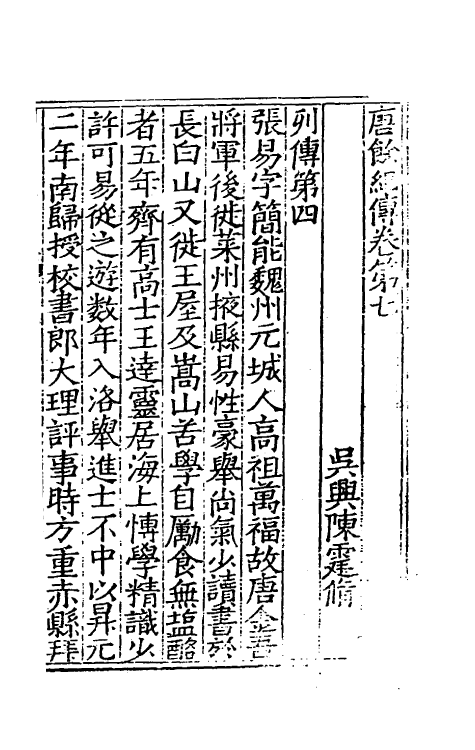 唐餘紀傳卷第七
吳興陳霆脩
列傳第四
張易字簡能魏州元城人高祖萬福故唐金吾
將軍後徙萊州掖縣易性豪舉尚氣少讀書於
長白山又徙王屋及嵩山苦學自勵食無塩酪
者五年齊有高士王達靈居海上博學精識少
許可易從之遊數年入洛舉進士不中以昇元
二年南歸授校書郎大理評事時方重赤縣拜